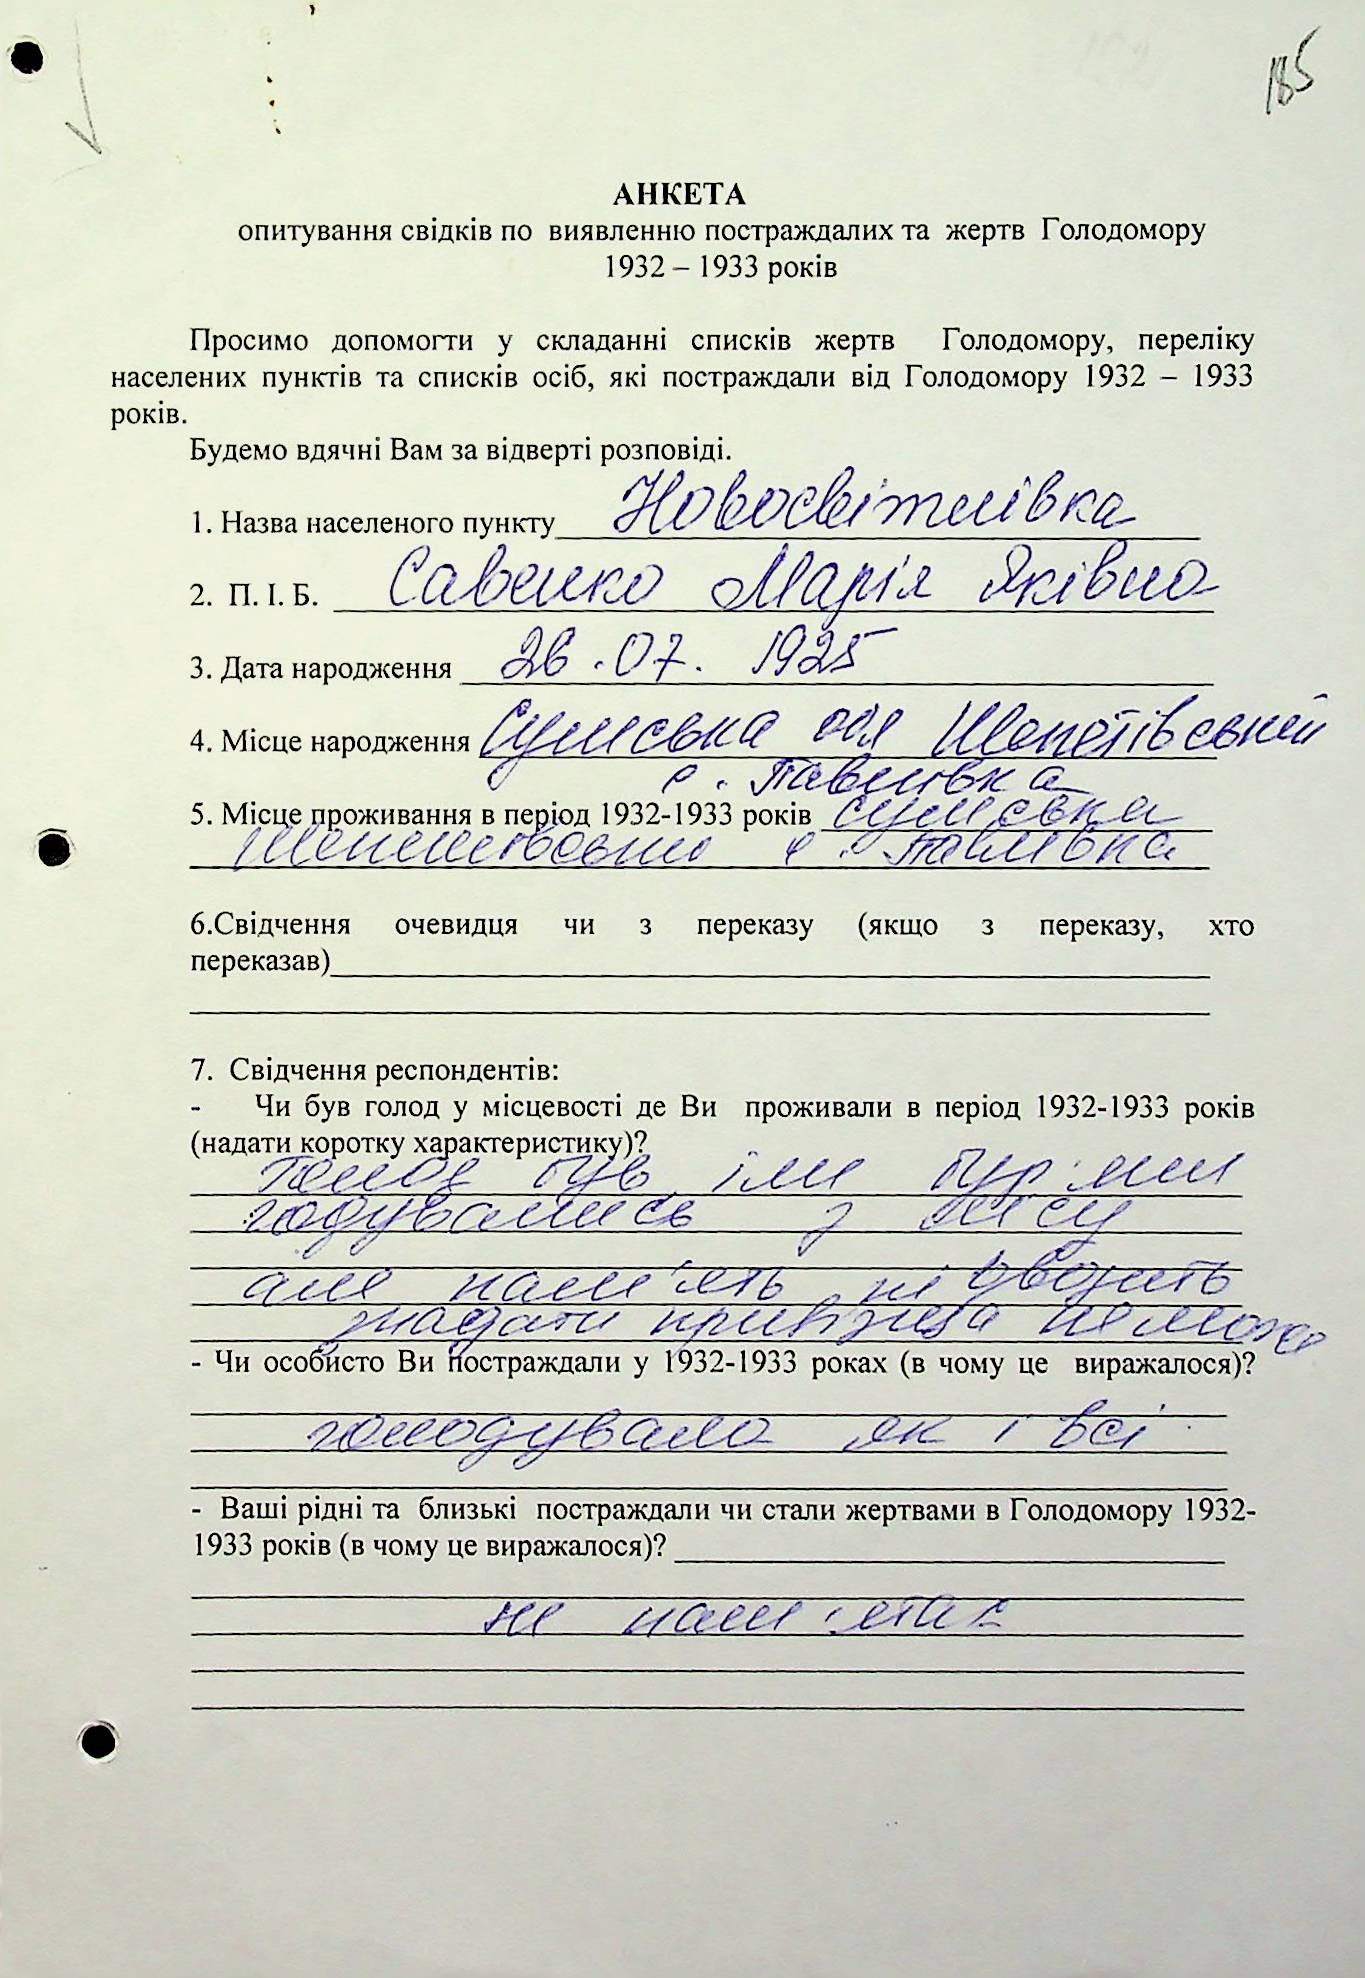 185
АНКЕТА
опитування свідків по виявленню постраждалих та жертв Голодомору
1932 – 1933 років
Просимо допомогти у складанні списків жертв Голодомору, переліку
населених пунктів та списків осіб, які постраждали від Голодомору 1932 – 1933
років.
Будемо вдячні Вам за відверті розповіді.
1. Назва населеного пункту Новосвітлівка
2. П. І. Б. Савенко Марія Яківна
3. Дата народження 26.07. 1925
4. Місце народження Сумська обл Шепетівський
с. Павлівка
5. Місце проживання в період 1932-1933 років сумська
с. Павлівка
6.Свідчення очевидця чи з переказу (якщо з переказу, хто
переказав)
7. Свідчення респондентів:
- Чи був голод у місцевості де Ви проживали в період 1932-1933 років
(надати коротку характеристику)?
Голод був їли
годувались з лісу
але пам'ять
згадати првізща не можу
- Чи особисто Ви постраждали у 1932-1933 роках (в чому це виражалося)?
голодувала як і всі
- Ваші рідні та близькі постраждали чи стали жертвами в Голодомору 1932-
1933 років (в чому це виражалося)?
не пам'ятає